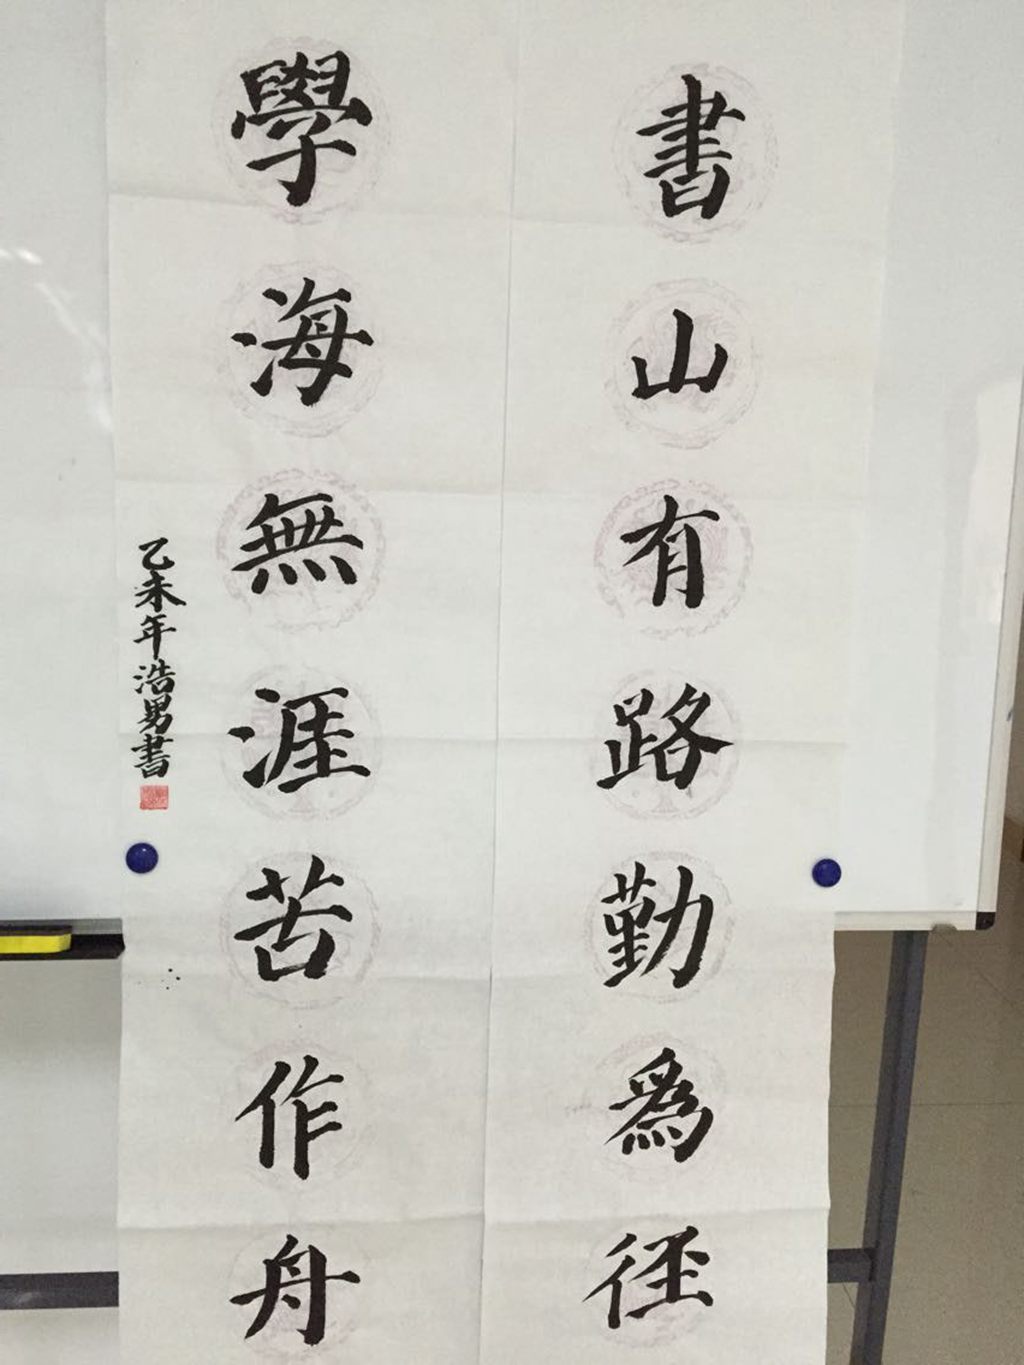 書山有路勤爲徑
學海無涯苦作舟
乙未年浩男書